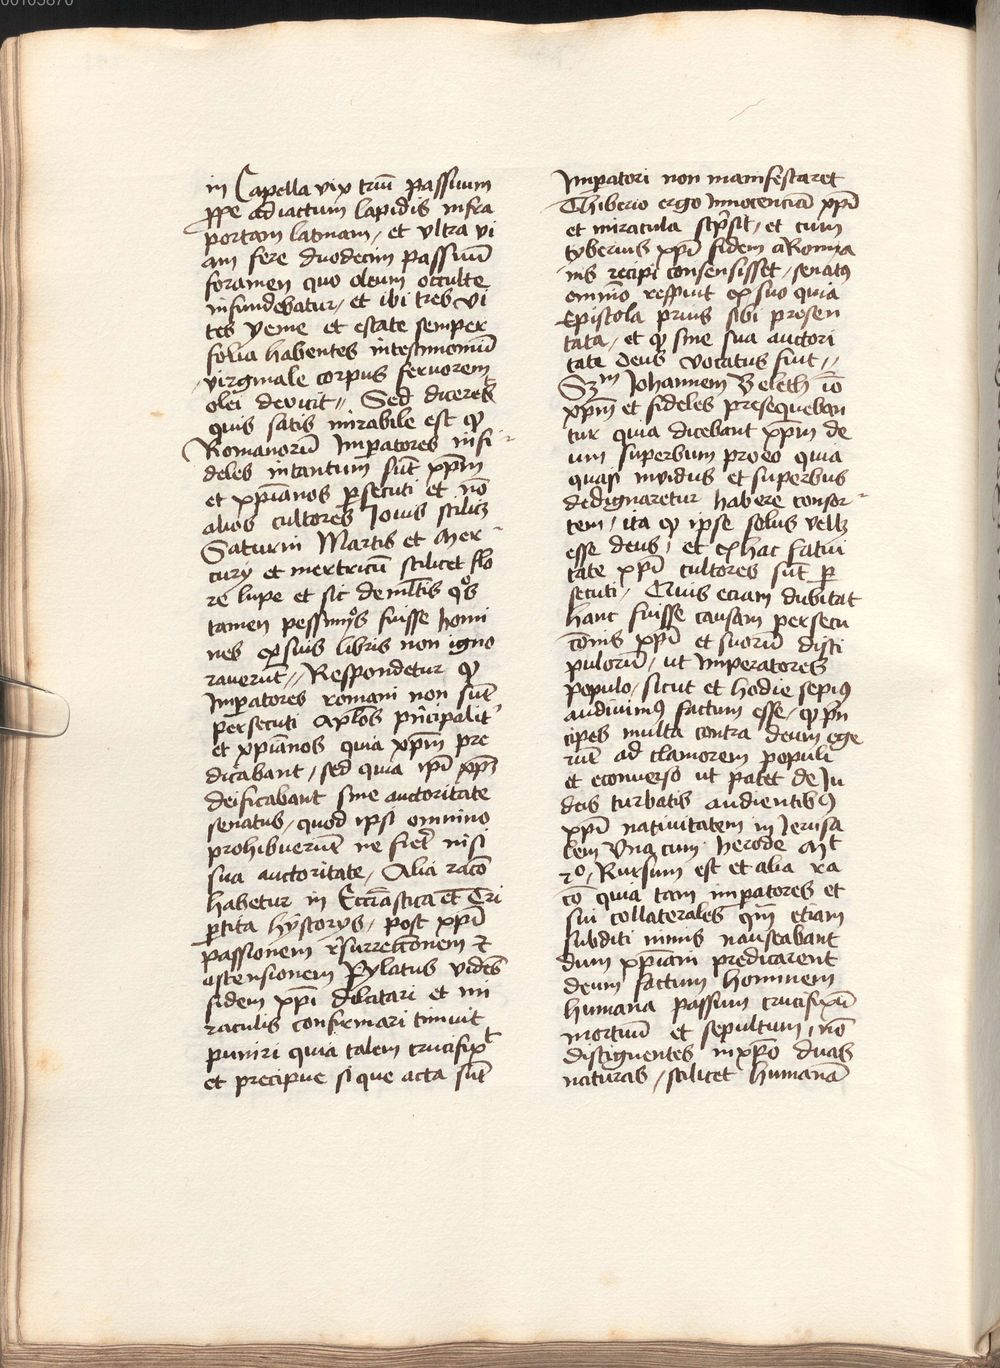 in Capella vix triū passuum
ꝓpe ad iactum lapidis infra
portam latinam, et vltra vi
am fere duodecim passuū
foramen quo oleum occulte
infundebatur, et ibi tres vi
tes yeme et estate semper
folia habentes intestimoniū
virginale corpus feruorem
olei deuicit,, Sed diceres
quis satis mirabile est qꝫ
Romanorū Imꝑatores infi-
deles intantum sūt xp̄m
et xp̄ianos ꝑsecuti et nō
alios cultores Iouis scilicꝫ
Saturni Martis et Mer-
cury et meretricū scilicet flo
re lupe et sic de ml̄tis qͦs
tamen pessimoͦs fuisse homi
nes ex suis libris non igno
rauerūt,, Respondetur qꝫ
Imꝑatores romani non sūt
persecuti ap̄los pͥncipalitʼ
et xp̄ianos quia xp̄m pre
dicabant, sed quia ip̄i xp̄m
deificabant sine auctoritate
senatus, quod ipsi omnino
prohibuerūt ne fieʳ nisi
sua auctoritate, Alia racō
habetur in Eccl̄iastica et Tri
ꝑtita hystorys, post xp̄i
passionem rʼsurrectionem ⁊
ostensionem Pylatus vidēs
fidem xp̄i dilatari et mi
raculis confirmari timuit
puniri quia talem crucifixᵗ
et precipue si que acta sūt
Imꝑatori non manifestaret
Thiberio ergo Innocenciā xp̄i
et miracula scͥpsit, et cum
tyberius xp̄i fidem a Roma
nis recipi consensisset, senatꝰ
omnīo respuit ex suo quia
Epistola prius sibi presen
tata, et qꝫ sine sua auctori
tate deus vocatus fuit,,
Sꝫᵐ Johannem Beleth iō
xp̄m et fideles presequeban
tur quia dicebant xp̄m de
um superbum pro eo quia
quasi inuidus et superbus
dedignaretur habere consor-
tem, ita qꝫ ipse solus vellꝫ
esse deus, et ex hac fatui
tate xp̄i cultores sūt ꝑ
secuti, Quis eciam dubitat
hanc fuisse causam persecu
cōnis xp̄i et suorū disci
pulorū, ut Imperatores
populo, sicut et hodie sepiꝰ
audiuimꝰ factum esse, qꝫ pͥn
cipes multa contra deum ege
rūt ad clamorem populi
et econuerso ut patet de Iu
deis turbatis audientibꝰ
xp̄i natiuitatem in Jerusa
lem Vna cum herode Mᵗ
2ͦ, Rursum est et alia ra
cō quia tam imꝑatores et
sui collaterales qm̄ etiam
subditi nimis nauseabant
dum xp̄iani predicarent
deum factum hominem
humana passum crucifixū
mortuū et sepultum, nō
distiguentes in xp̄o duas
naturas, scilicet humanā